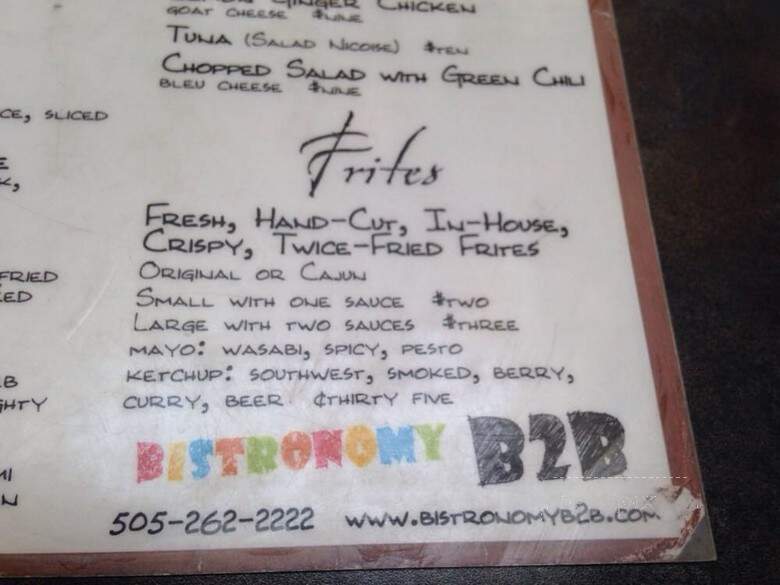 Ginger Chicken
Goat Cheese $Nine
Tuna (Salad Nicoise) $Ten
Chopped Salad with Green Chili
Bleu Cheese $Nine
CE, SLICED
Frites
Fresh, Hand-Cut, In-House,
Crispy, Twice-Fried Frites
Original or Cajun
Small with one sauce $two
Large with two sauces $three
Mayo: wasabi, spicy, pesto
Ketchup: southwest, smoked, berry,
curry, beer ¢thirty five
FRIED
BISTRONOMY B2B
505-262-2222 www.bistronomyb2b.com